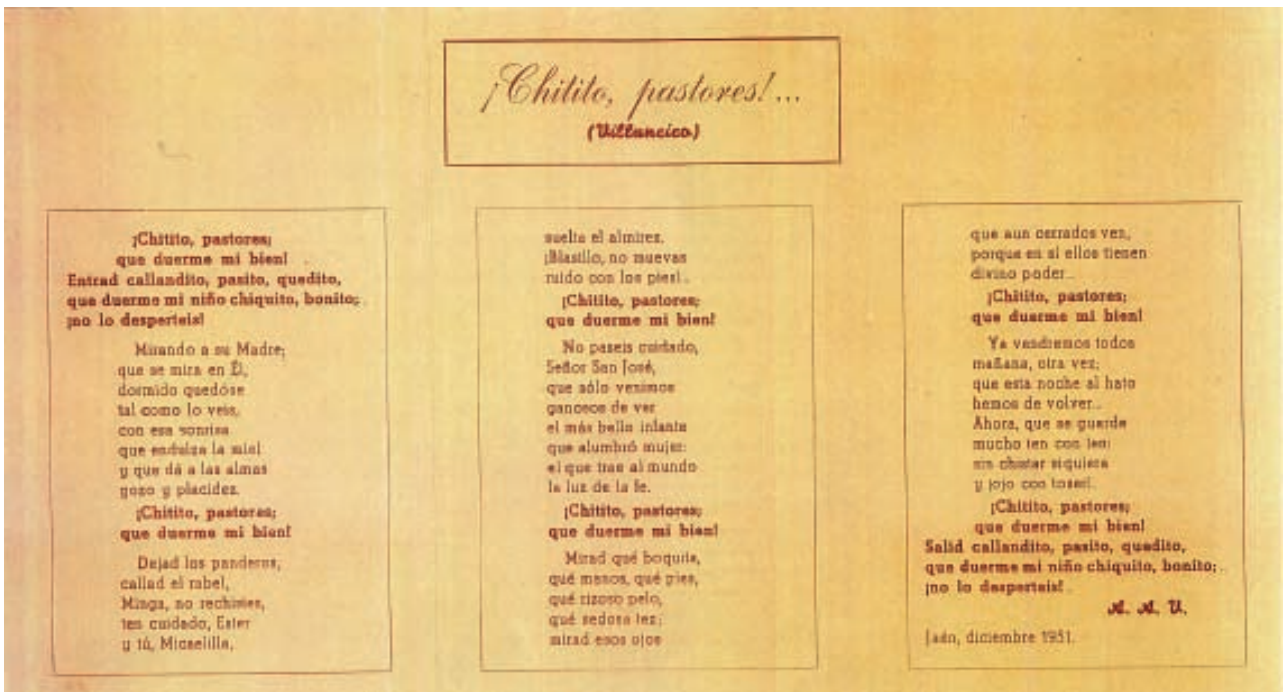 ¡Chitito, pastores!...
(Villancico)
¡Chitito, pastores;
que duerme mi bien!
Entrad callandito, pasito, quedito,
que duerme mi niño chiquito, bonito;
¡no lo desperteis!
Mirando a su Madre;
que se mira en Él,
dormido quedóse
tal como lo veis,
con esa sonrisa
que endulza la miel
y que dá a las almas
gozo y placidez.
¡Chitito, pastores;
que duerme mi bien!
Dejad los panderos,
callad el rabel,
Minga, no rechistes,
ten cuidado, Ester
y tú, Micaelilla,
suelta el almirez.
¡Blasillo, no muevas
ruido con los pies!..
¡Chitito, pastores;
que duerme mi bien!
No paseis cuidado,
Señor San José,
que sólo venimos
ganosos de ver
el más bello infante
que alumbró mujer:
el que trae al mundo
la luz de la fe.
¡Chitito, pastores;
que duerme mi bien!
Mirad qué boquita,
qué manos, qué pies,
qué rizoso pelo,
qué sedosa tez;
mirad esos ojos
que aun cerrados ven,
porque en sí ellos tienen
divino poder..
¡Chitito, pastores;
que duerme mi bien!
Ya vendremos todos
mañana, otra vez;
que esta noche al hato
hemos de volver..
Ahora, que se guarde
mucho ten con ten;
sin chistar siquiera
y ¡ojo con toser!..
¡Chitito, pastores;
que duerme mi bien!
Salid callandito, pasito, quedito,
que duerme mi niño chiquito, bonito;
¡no lo desperteis!
A. A. U.
Jaén, diciembre 1951.